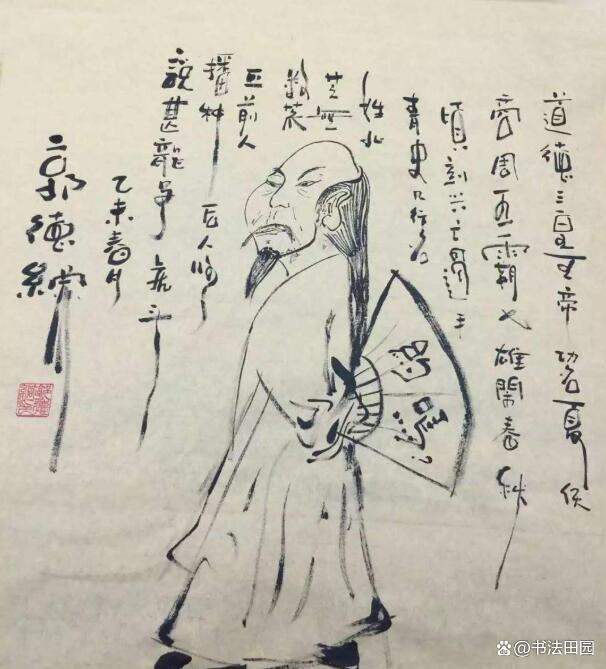 道德三皇五帝 功名夏侯
商周五霸七雄闹春秋
顷刻兴亡过手
青史几行名
姓北
芒無
数荒
丘前人
播种后人收
說甚龍爭虎斗
乙未春月
郭德綱
@书法田园